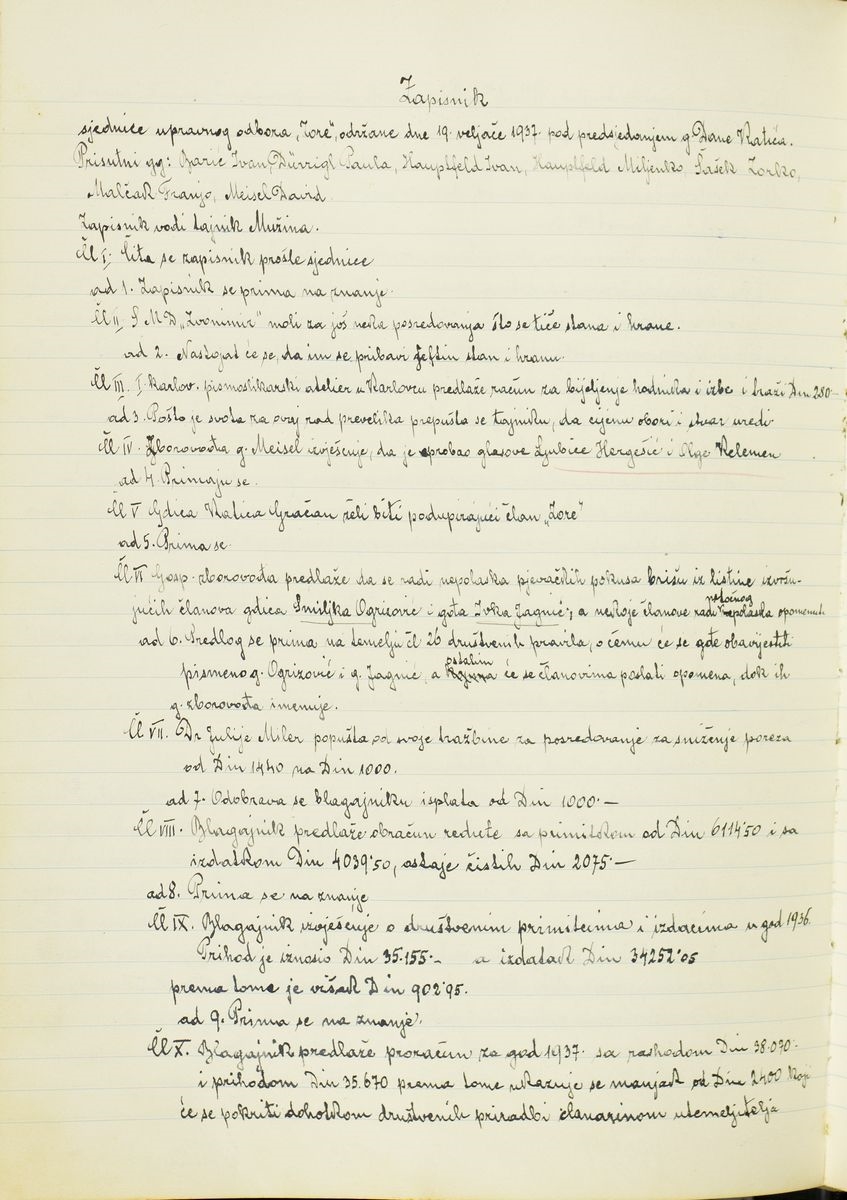 Zapisnik
sjednice upravnog odbora „Zore", održane dne 19. veljače 1937. pod predsjedanjem g Dane Katića.
Prisutni gg: Barić Ivan, Dürrigl Paula, Hauptfeld Ivan, Hauptfeld Miljenko, Šašek Zorko,
Malčak Franjo, Meisel David
Zapisnik vodi tajnik Mužina.
Čl I. Čita se zapisnik prošle sjednice
ad 1. Zapisnik se prima na znanje.
Čl II S M D „Zvonimir" moli za još neka posredovanja što se tiče stana i hrane.
ad 2. Nastojat će se, da im se pribavi jeftin stan i hranu.
Čl III. I. karlov. pismoslikarski atelier u Karlovcu predlaže račun za bijeljenje hodnika i izbe i traži Din 280–
ad 3. Pošto je svota za ovaj rad prevelika prepušta se tajniku, da cijenu obori i stvar uredi.
Čl IV. Zborovođa g. Meisel izvješćuje, da je probao glasove Ljubice Hergešić i Olge Kelemen
ad 4. Primaju se.
Čl V Gdica Katica Gračan želi biti podupirajući član „Zore"
ad 5. Prima se.
Čl VI Gosp. zborovođa predlaže da se radi nepolaska pjevačkih pokusa brišu iz listine izvršu-
jućih članova gdica Smiljka Ogrizović i gđa Ivka Jagnić, a nekoje članove radi netočnog polaska opomenuti
ad 6. Predlog se prima na temelju čl 26 društvenih pravila, o čemu će se gđe obavijestiti
pismeno g. Ogrizović i g. Jagnić, a ostalim će se članovima poslati opomena, dok ih
g. zborovođa imenuje.
Čl VII. Dr Julije Miler popušta od svoje tražbine za posredovanje za sniženje poreza
od Din 1440 na Din 1000.
ad 7. Odobrava se blagajniku isplata od Din 1000.–
Čl VIII. Blagajnik predlaže obračun redute sa primitkom od Din 6114'50 i sa
izdatkom Din 4039'50, ostaje čistih Din 2075.–
ad 8. Prima se na znanje
Čl IX. Blagajnik izvješćuje o društvenim primitcima i izdacima u god 1936.
Prihod je iznosio Din 35.155.– a izdatak Din 34252'05
prema tome je višak Din 902'95.
ad 9. Prima se na znanje.
Čl X. Blagajnik predlaže proračun za god 1937. sa rashodom Din 38.070.–
i prihodom Din 35.670 prema tome ukazuje se manjak od Din 2400 koji
će se pokriti dohotkom društvenih priradbi članarinom utemeljitelja